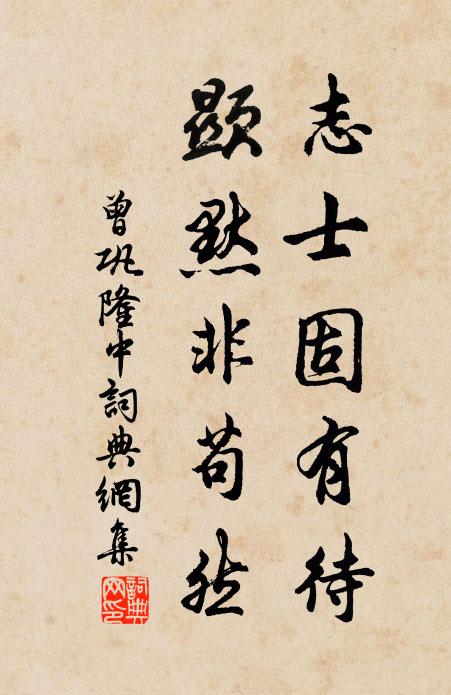 志士固有待
顯默非苟然
曾巩隆中詞典網集
詞典
网印